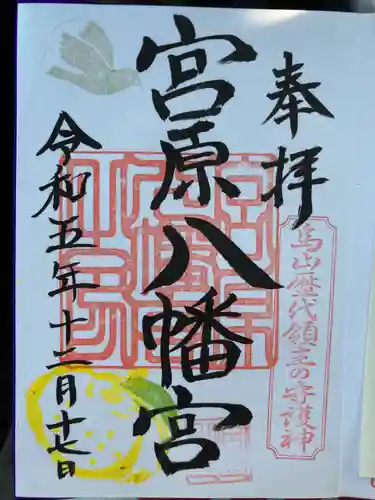 奉拝
烏山歴代領主の守護神
宮原八幡宮
令和五年十二月十七日